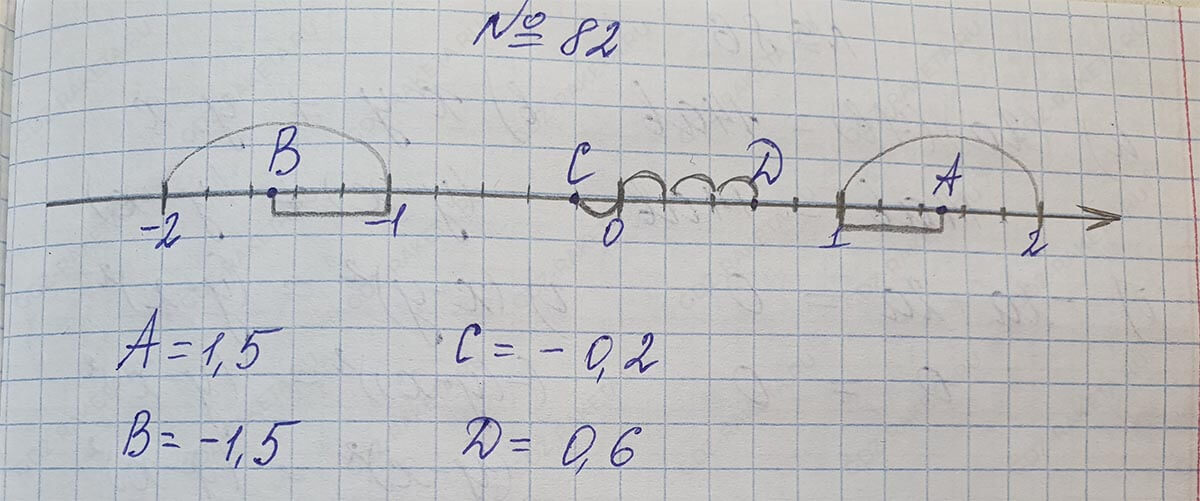 № 82
B C D A
-2 -1 0 1 2
A = 1,5 C = - 0,2
B = -1,5 D = 0,6